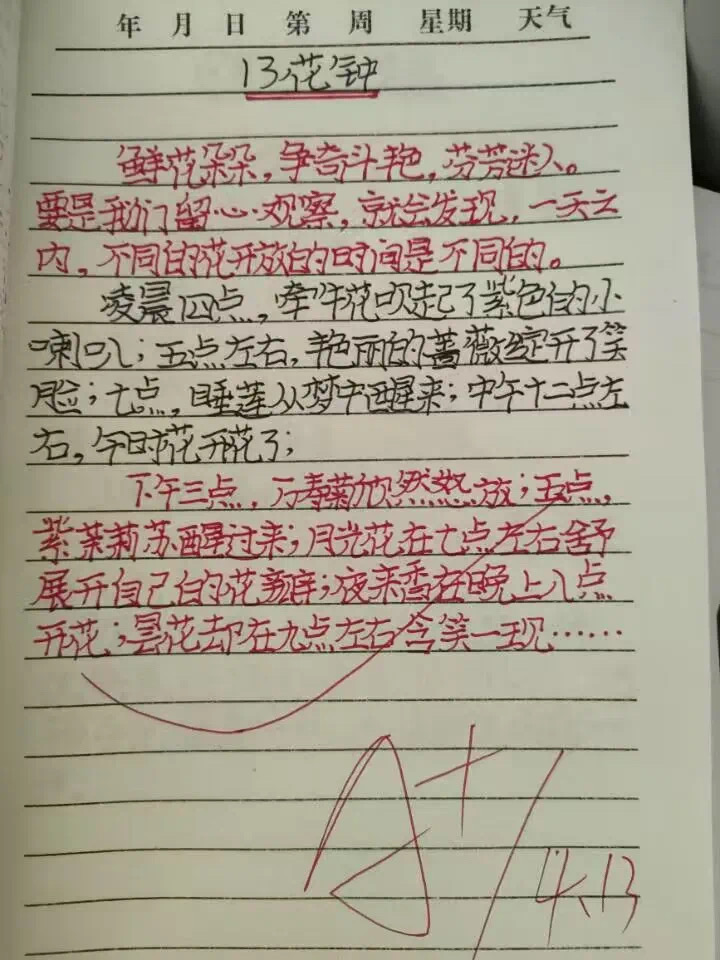 年 月 日 第 周 星期 天气
13花钟
鲜花朵朵，争奇斗艳，芬芳迷人。
要是我们留心观察，就会发现，一天之
内，不同的花开放的时间是不同的。
凌晨四点，牵牛花吹起了紫色的小
喇叭；五点左右，艳丽的蔷薇绽开了笑
脸；七点，睡莲从梦中醒来；中午十二点左
右，午时花开花了；
下午三点，万寿菊欣然怒放；五点，
紫茉莉苏醒过来；月光花在七点左右舒
展开自己的花瓣；夜来香在晚上八点
开花；昙花却在九点左右含笑一现……
A+
4.13